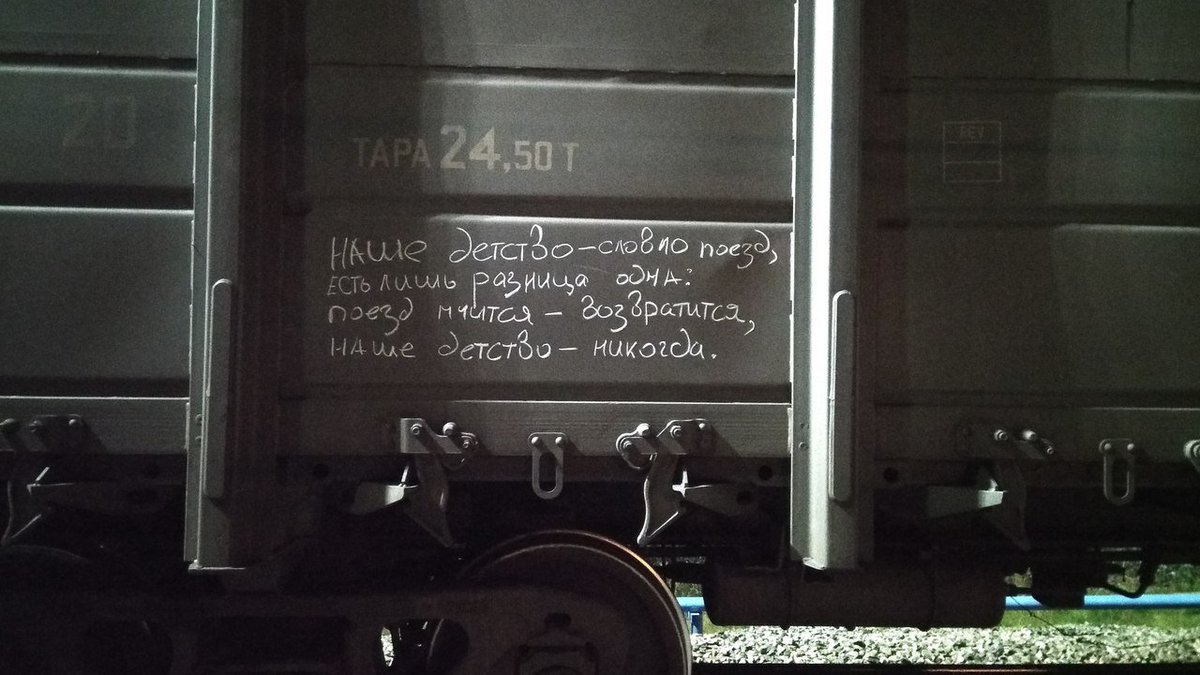 20
ТАРА 24,50 Т
REV
НАШЕ детство – словно поезд,
ЕСТЬ лишь разница одна:
поезд мчится – возвратится,
НАШЕ детство – никогда.